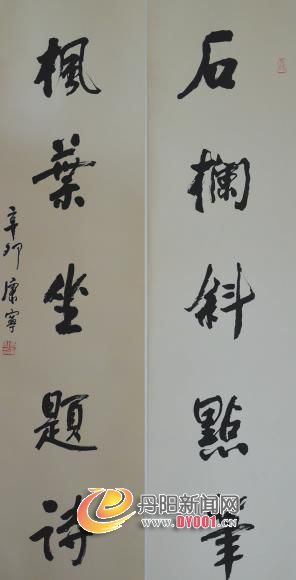 石欄斜點筆
楓葉坐題詩
辛卯 康寧
丹阳新闻网
WWW.DY001.CN